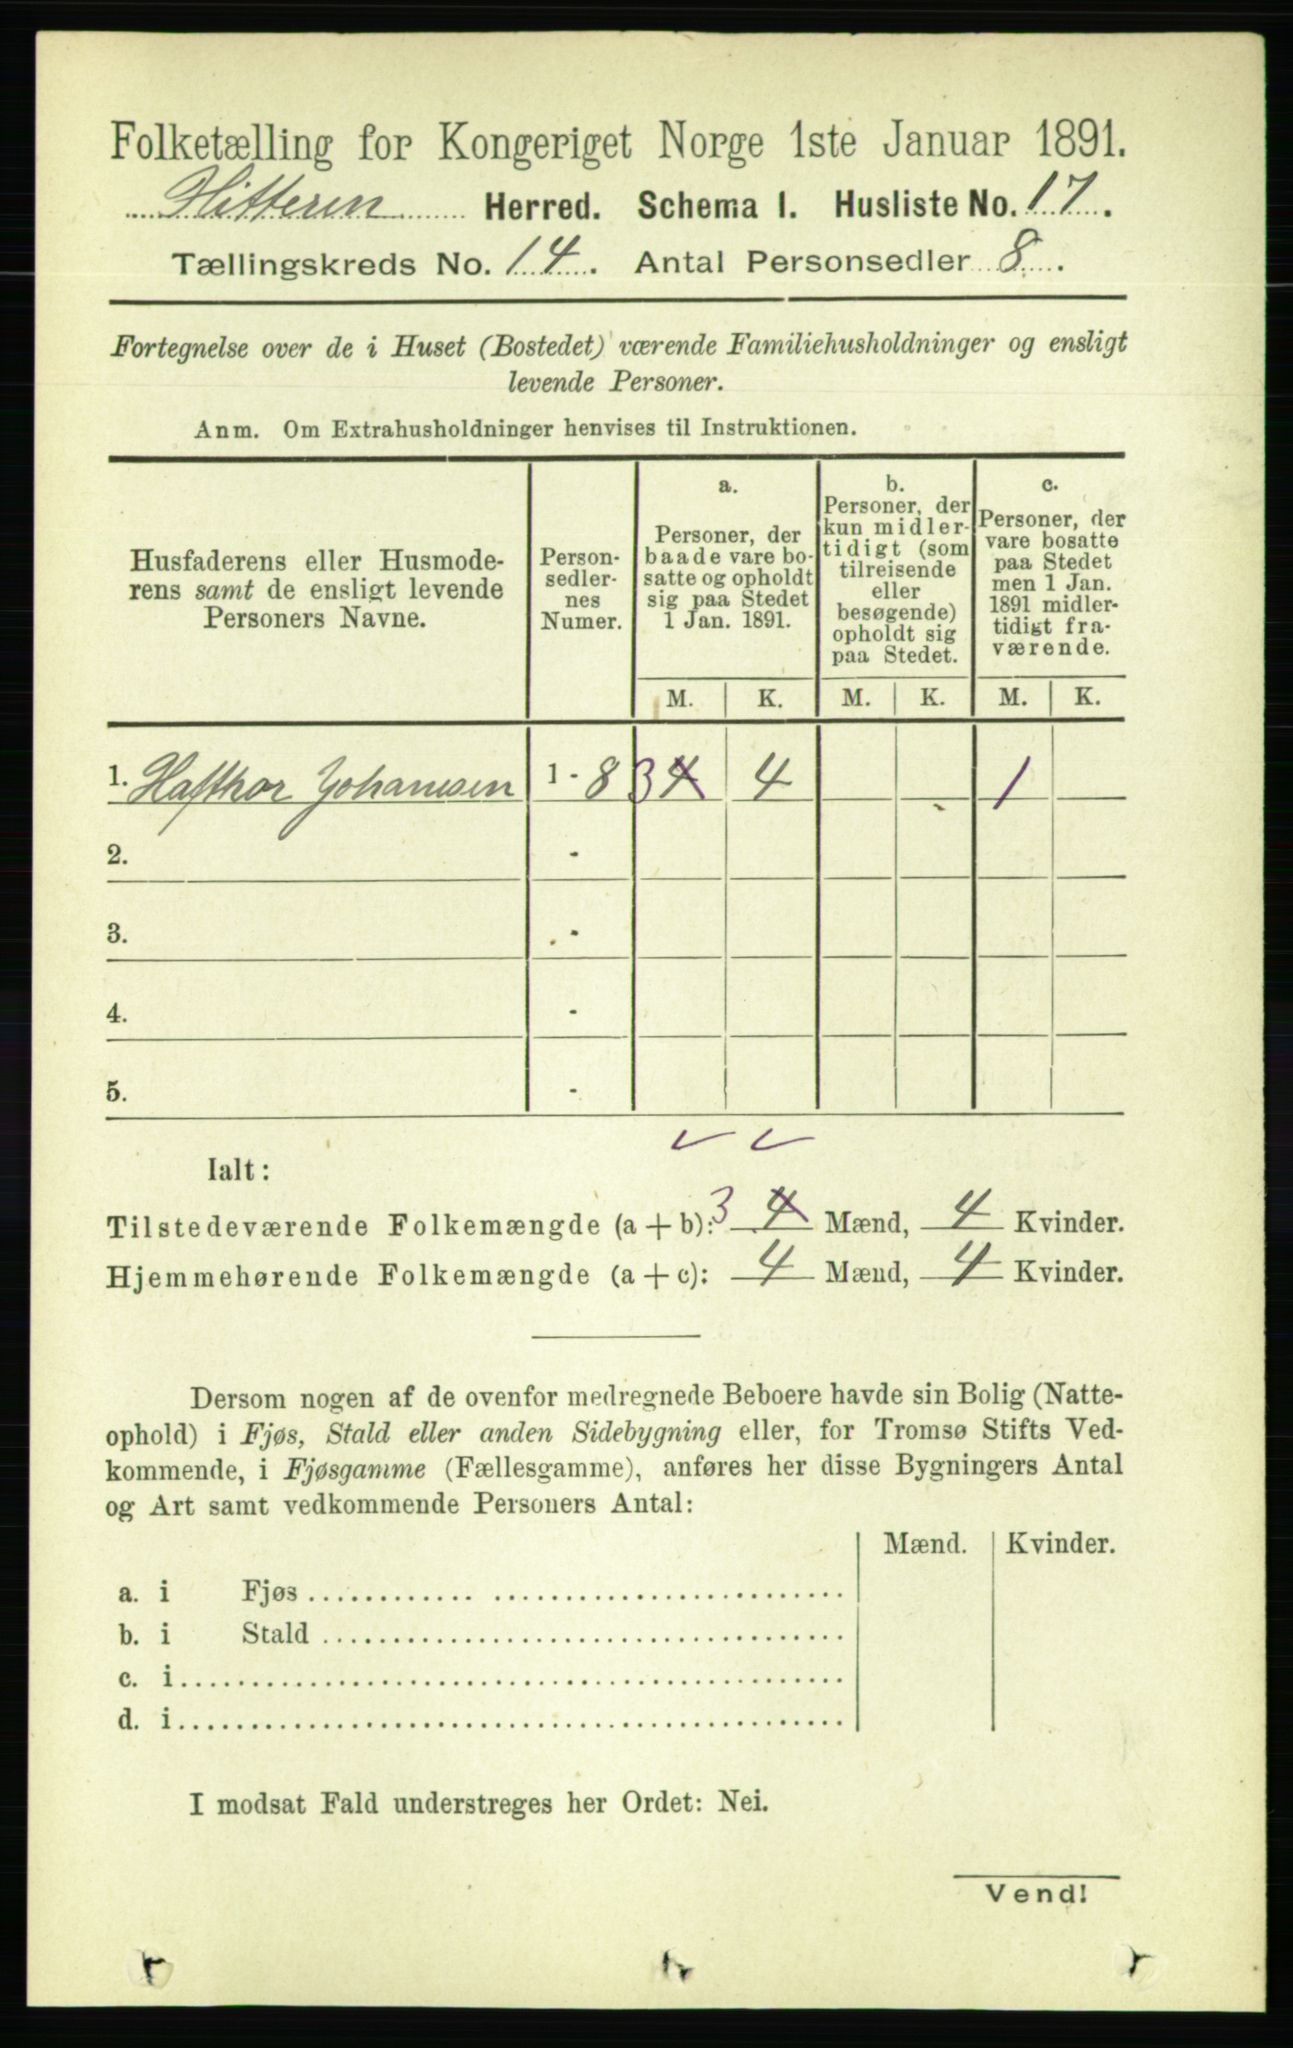 Folketælling for Kongeriget Norge 1ste Januar 1891.
Hitteren Herred. Schema I. Husliste No. 17.
Tællingskreds No. 14. Antal Personsedler 8.
Fortegnelse over de i Huset (Bostedet) værende Familiehusholdninger og ensligt
levende Personer.
Anm. Om Extrahusholdninger henvises til Instruktionen.
Husfaderens eller Husmode-
rens samt de ensligt levende
Personers Navne.
Person-
sedler-
nes
Numer.
a.
Personer, der
baade vare bo-
satte og opholdt
sig paa Stedet
1 Jan. 1891.
b.
Personer, der
kun midler-
tidigt (som
tilreisende
eller
besøgende)
opholdt sig
paa Stedet.
c.
Personer, der
vare bosatte
paa Stedet
men 1 Jan.
1891 midler-
tidigt fra-
værende.
M. K. M. K. M. K.
1. Hafthor Johannsen 1 - 8 3 4 4 1
2. -
3. -
4. -
5. -
Ialt:
Tilstedeværende Folkemængde (a + b): 3 4 Mænd, 4 Kvinder.
Hjemmehørende Folkemængde (a + c): 4 Mænd, 4 Kvinder.
Dersom nogen af de ovenfor medregnede Beboere havde sin Bolig (Natte-
ophold) i Fjøs, Stald eller anden Sidebygning eller, for Tromsø Stifts Ved-
kommende, i Fjøsgamme (Fællesgamme), anføres her disse Bygningers Antal
og Art samt vedkommende Personers Antal:
Mænd. Kvinder.
a. i Fjøs
b. i Stald
c. i
d. i
I modsat Fald understreges her Ordet: Nei.
Vend!